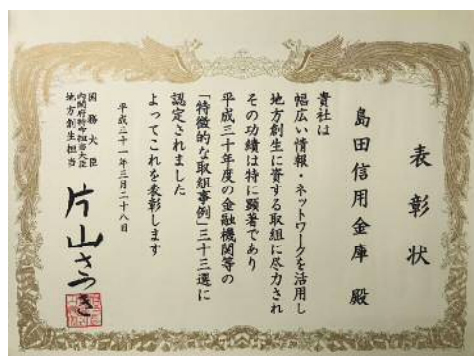 表彰状
島田信用金庫 殿
貴社は
幅広い情報・ネットワークを活用し
地方創生に資する取組に尽力され
その功績は特に顕著であり
平成三十年度の金融機関等の
「特徴的な取組事例」三十三選に
認定されました
よってこれを表彰します
平成三十一年三月二十八日
国務大臣
内閣府特命担当大臣
地方創生担当
片山さつき